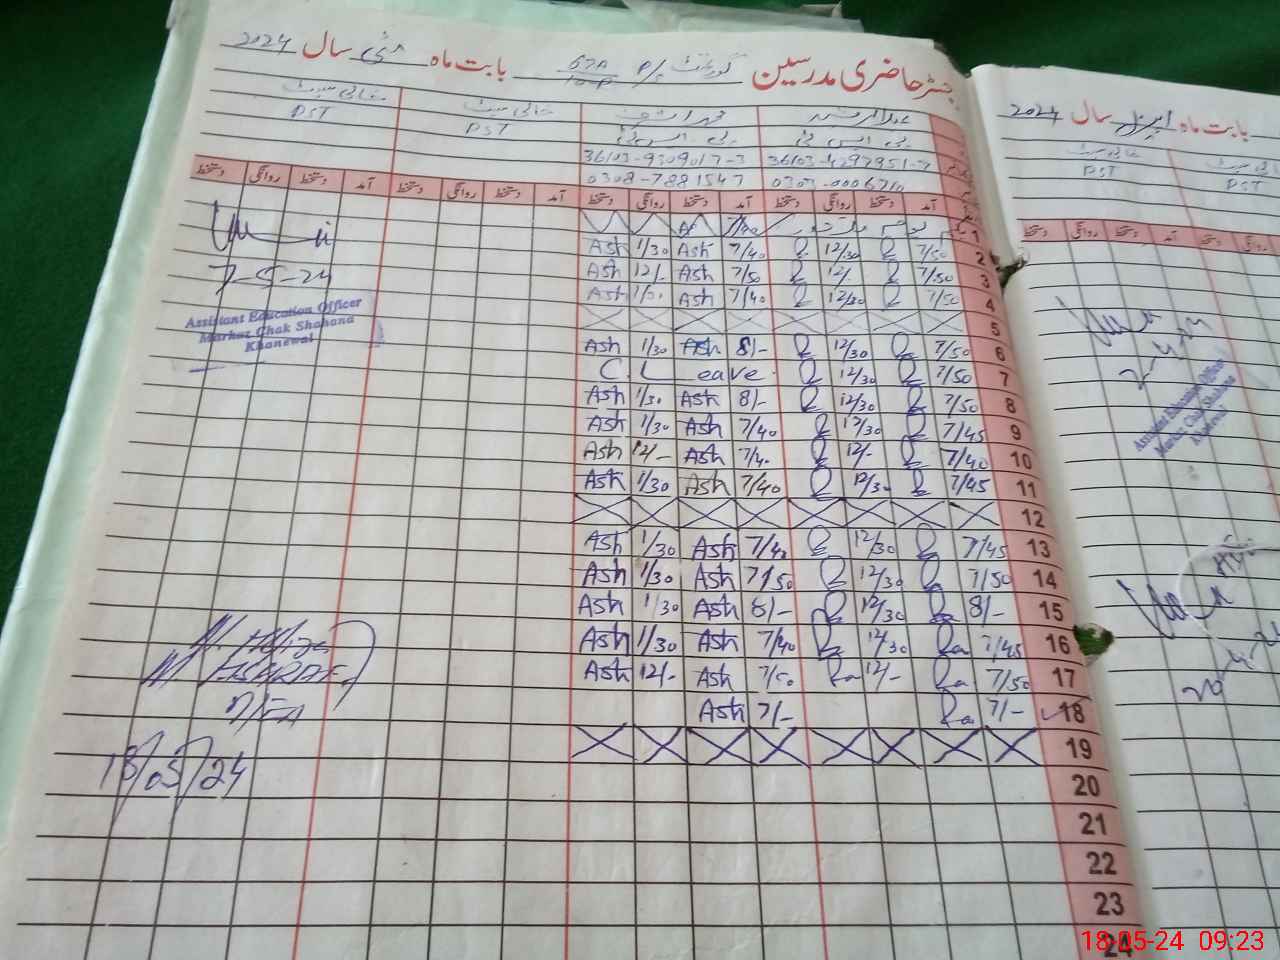 رجسٹر حاضری مدرسین گورنمنٹ P/ 67A 10-R بابت ماہ مئی سال 2024
خالی سیٹ
PST PST
36103-4297951-7 36103-9309017-3
0303-0006710 0308-7881547
آمد دستخط روانگی دستخط آمد دستخط روانگی دستخط آمد دستخط روانگی دستخط آمد دستخط روانگی دستخط
1
Ash 1/30 Ash 7/40 12/30 7/50 2
Ash 12/- Ash 7/50 12/- 7/50 3
Ash 1/30 Ash 7/40 12/30 7/50 4
5
Ash 1/30 Ash 8/- 12/30 7/50 6
C. Leave 12/30 7/50 7
Ash 1/30 Ash 8/- 12/30 7/50 8
Ash 1/30 Ash 7/40 12/30 7/45 9
Ash 12/- Ash 7/40 12/- 7/40 10
Ash 1/30 Ash 7/40 12/30 7/45 11
12
Ash 1/30 Ash 7/40 12/30 7/45 13
Ash 1/30 Ash 7/50 12/30 7/50 14
Ash 1/30 Ash 8/- 12/30 8/- 15
Ash 1/30 Ash 7/40 12/30 Ra 7/45 16
Ash 12/- Ash 7/50 Ra 12/- Ra 7/50 17
Ash 7/- Ra 7/- 18
19
20
21
22
23
24
7-5-24
Assistant Education Officer
Markaz Chak Shahana
Khanewal
18/05/24
بابت ماہ اپریل سال 2024
PST PST
دستخط روانگی دستخط آمد دستخط روانگی
Assistant Education Officer
Markaz Chak Shahana
Khanewal
18-05-24 09:23